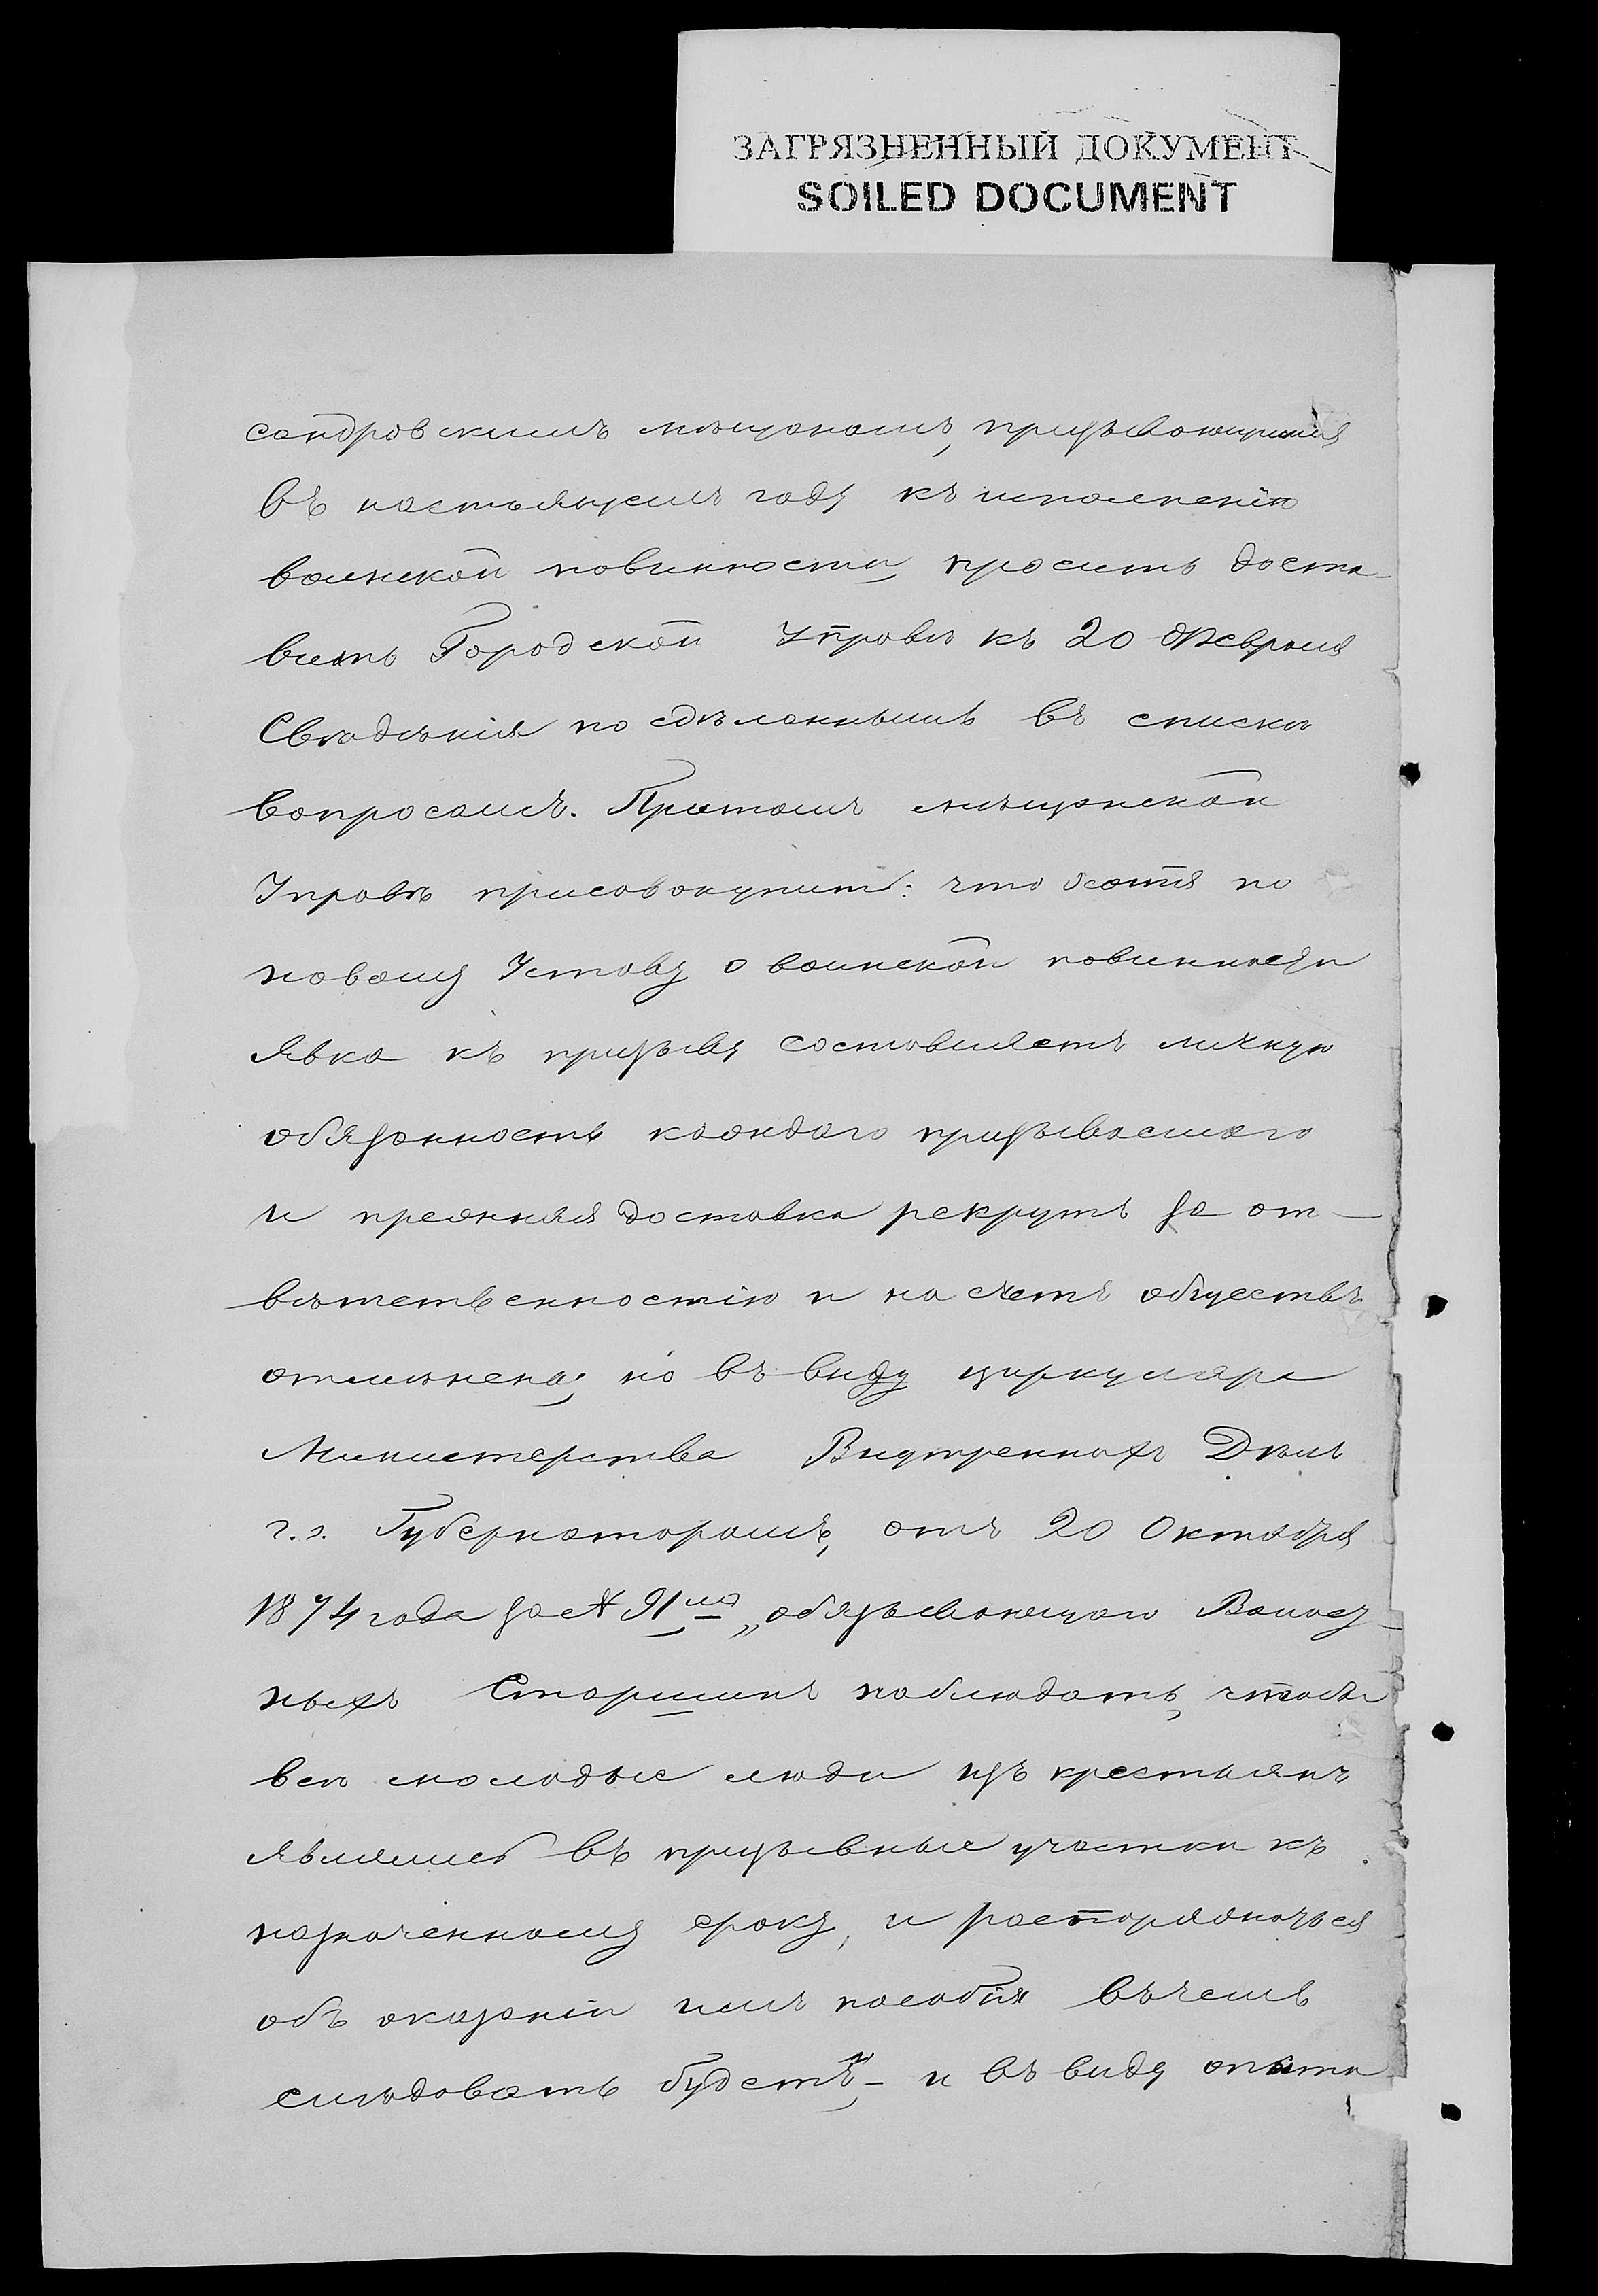 ЗАГРЯЗНЕННЫЙ ДОКУМЕНТ
SOILED DOCUMENT
сандровскимъ мѣщанамъ, призывающимся
въ настоящемъ году къ исполненію
воинской повинности, просить доста-
вить Городской Управѣ къ 20 Февраля
Свѣдѣнія по сдѣланнымъ въ спискѣ
вопросамъ. Притомъ мѣщанской
Управѣ присовокупить: что хотя по
новому Уставу о воинской повинности
явка къ призыву составляетъ личную
обязанность каждаго призываемаго
и прежняя доставка рекрутъ за от-
вѣтственностію и на счетъ обществъ
отмѣнена, но въ виду циркуляра
Министерства Внутреннихъ Дѣлъ
г.г. Губернаторамъ, отъ 20 Октября
1874 года за № 91мъ „обязывающаго Волос-
ныхъ Старшинъ наблюдать, чтобы
всѣ молодые люди изъ крестьянъ
явились въ призывные участки къ
назначенному сроку, и распоряжаться
объ оказаніи имъ пособія въ чемъ
слѣдовать будетъ“, - и въ виду опыта